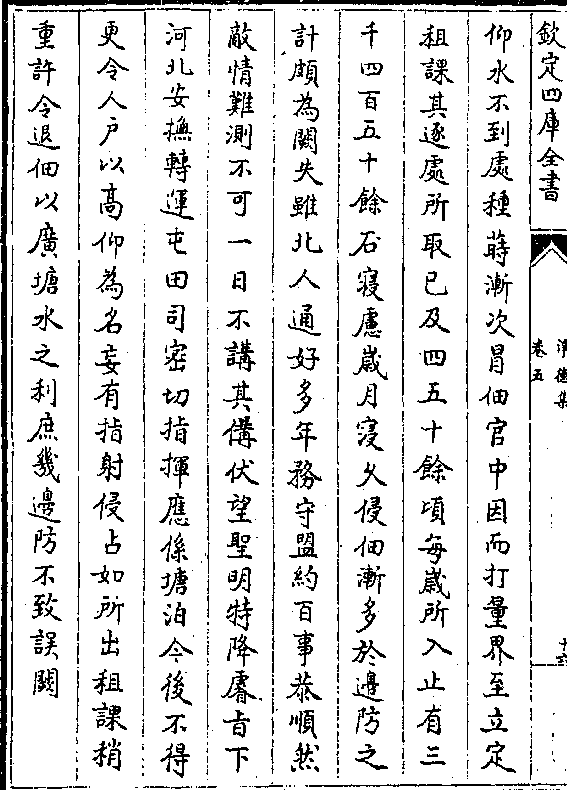 欽定四庫全書
淨德集
卷五
仰水不到處種蒔漸次冒佃官中因而打量界至立定
租課其逐處所取已及四五十餘頃每歲所入止有三
千四百五十餘石寝慮歲月寖乆侵佃漸多於邊防之
計頗為闕失雖北人通好多年務守盟約百事恭順然
敵情難測不可一日不講其備伏望聖明特降睿㫖下
河北安撫轉運屯田司密切指揮應係塘泊今後不得
更令人户以高仰為名妄有指射侵占如所出租課稍
重許令退佃以廣塘水之利庶幾邊防不致誤闕